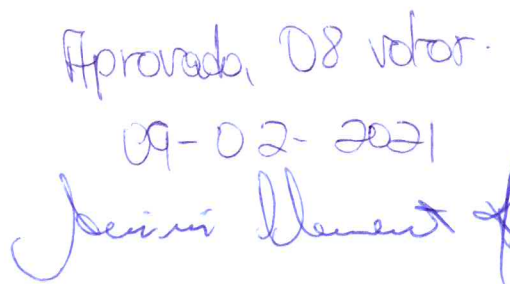 Aprovado, 08 votos.
09-02-2021